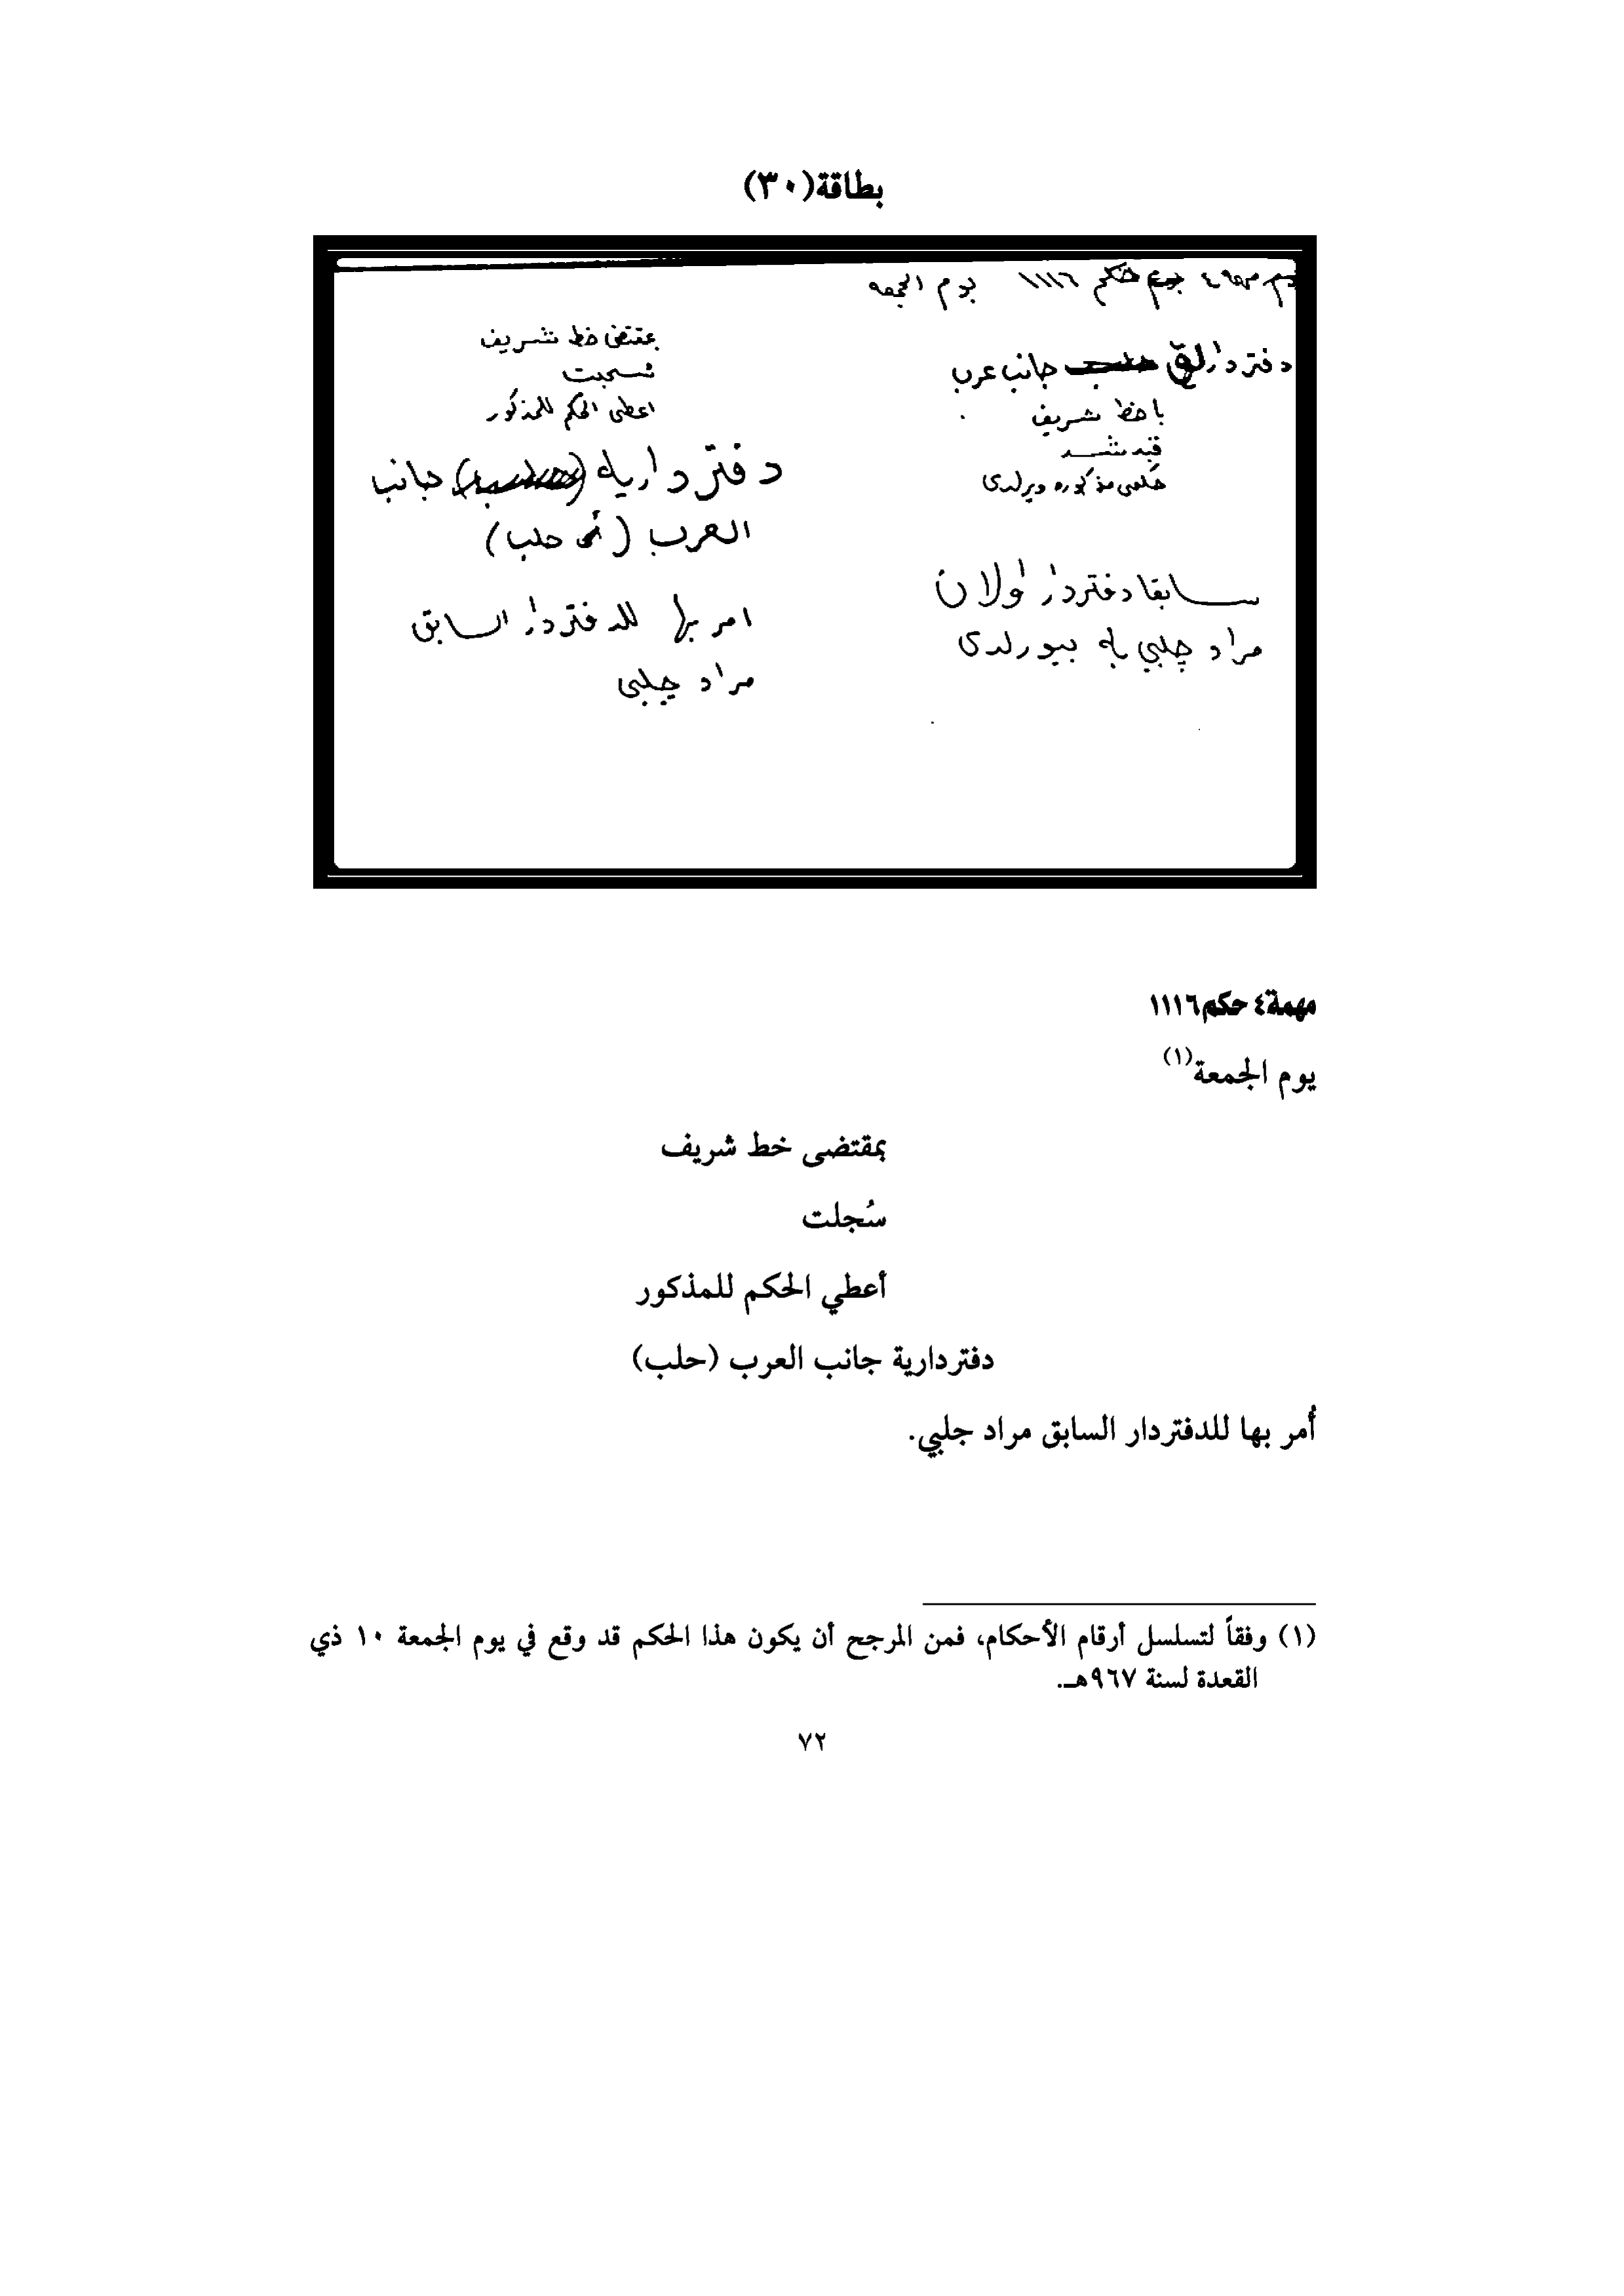 بطاقة(٣٠)
مهمة٤ حكم ١١١٦ يوم الجمعه
دفتردارلق جانب عرب
با خط شريف
قيد شد
حكمى مذكوره ويرلدى
سابقا دفتردار اولان
مراد چلبي يه بيورلدى
بمقتضى خط شريف
سجلت
اعطى الحكم للمذكور
دفتردارية جانب
العرب (أى حلب)
امر بها للدفتردار السابق
مراد چلبى
مهمة٤ حكم١١١٦
يوم الجمعة(١)
بمقتضى خط شريف
سُجلت
أعطي الحكم للمذكور
دفتردارية جانب العرب (حلب)
أُمر بها للدفتردار السابق مراد جلبي.
(١) وفقاً لتسلسل أرقام الأحكام، فمن المرجح أن يكون هذا الحكم قد وقع في يوم الجمعة ١٠ ذي
القعدة لسنة ٩٦٧هـ.
٧٢